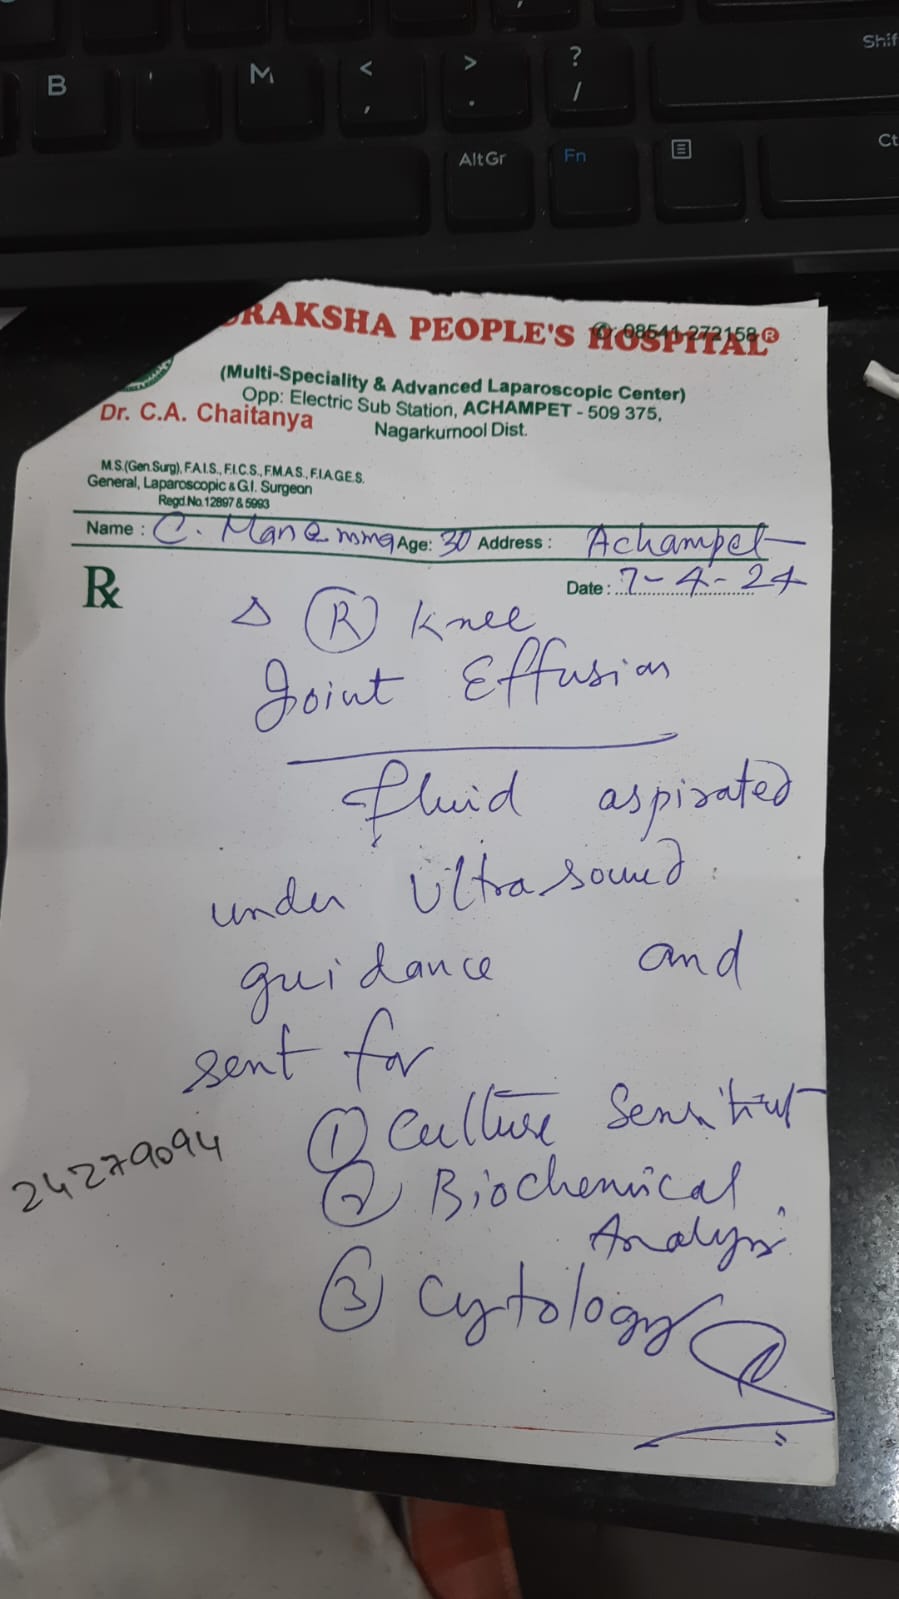 B ' M < , > . ? / Shif
AltGr Fn Ct
RAKSHA PEOPLE'S HOSPITAL®
08541-272158
(Multi-Speciality & Advanced Laparoscopic Center)
Opp: Electric Sub Station, ACHAMPET - 509 375,
Nagarkurnool Dist.
Dr. C.A. Chaitanya
M.S.(Gen.Surg), F.A.I.S., F.I.C.S., F.M.A.S., F.I.A.G.E.S.
General, Laparoscopic & G.I. Surgeon
Regd.No.12897 & 5993
Name : C. Manemma Age: 30 Address : Achampet
Rx
Date : 7-4-24
Δ (R) Knee
Joint Effusion
fluid aspirated
under Ultrasound
guidance and
sent for
(1) Culture Sensitivit
(2) Biochemical
Analysis
(3) Cytology
24279094